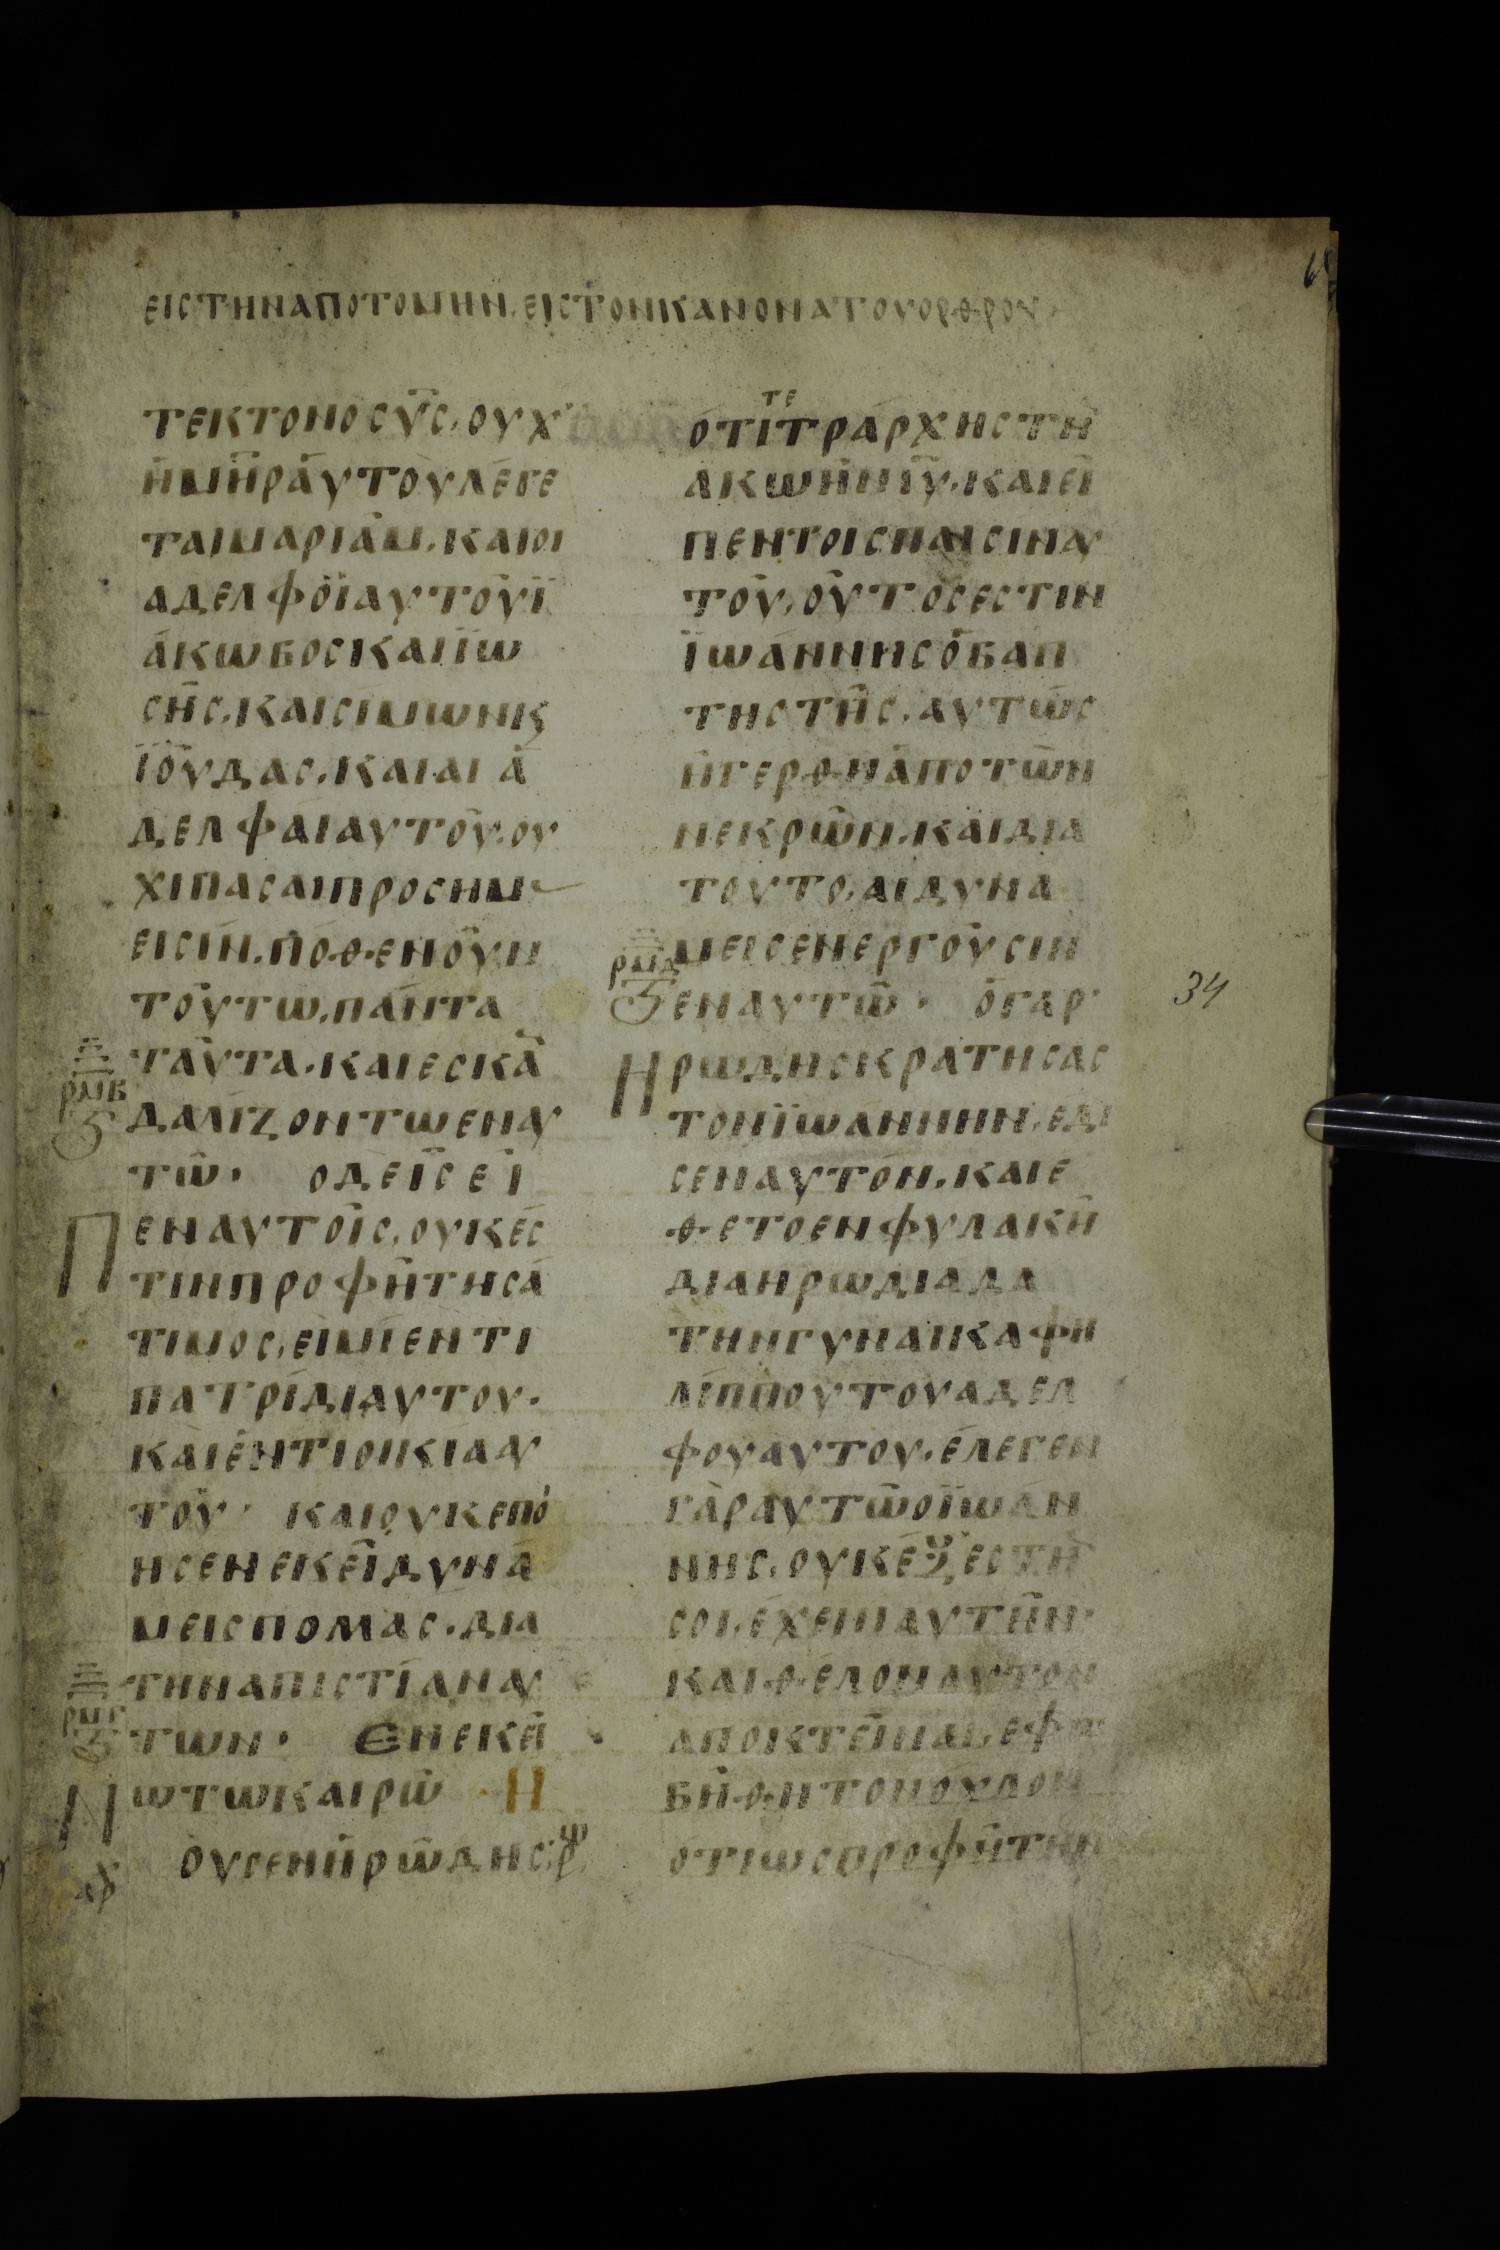 ΕΙСΤΗΝΑΠΟΤΟΜΗΝ. ΕΙСΤΟΝΚΑΝΟΝΑΤΟΥΟΡΘΡΟΥ
ΤΕΚΤΟΝΟСΥ̅С, ΟΥΧ
ΗΜΗ̅ΡΑΥΤΟΥΛΕΓΕ
ΤΑΙΜΑΡΙΑΜ. ΚΑΙΟΙ
ΑΔΕΛΦΟΪΑΥΤΟΥΪ
ΑΚΩΒΟСΚΑΙΪΩ
СΗС. ΚΑΙСΙΜΩΝΚ
ΪΟΥΔΑС. ΚΑΙΑΙ Α
ΔΕΛΦΑΙΑΥΤΟΥ. ΟΥ
ΧΙΠΑСΑΙΠΡΟСΗΜ
ΕΙСΙΝ. ΠΟΘΕΝΟΥΝ
ΤΟΥΤΩ. ΠΑΝΤΑ
ΤΑΥΤΑ. ΚΑΙΕСΚΑ
ΡΜΒ ΔΑΛΙΖΟΝΤΩΕΝΑΥ
ΤΩ· ΟΔΕΙ̅СΕΙ
ΠΕΝΑΥΤΟΙС, ΟΥΚΕС
ΤΙΝΠΡΟΦΗΤΗСΑ
ΤΙΜΟС, ΕΙΜΙΕΝΤΙ
ΠΑΤΡΙΔΙΑΥΤΟΥ·
ΚΑΙΕΝΤΙΟΙΚΙΑΑΥ
ΤΟΥ· ΚΑΙΟΥΚΕΠΟ
ΗСΕΝΕΚΕΙΔΥΝΑ
ΜΕΙСΠΟΜΑС. ΔΙΑ
ΤΗΝΑΠΙСΤΙΑΝΑΥ
ΡΜΓ ΤΩΝ· ΕΝΕΚΕΙ
ΝΩΤΩΚΑΙΡΩ Η
ΟΥСΕΝΗΡΩΔΗС
ΤΕ
ΟΤΙΤΡΑΡΧΗСΤΗ
ΑΚΩΗΝΙ̅Υ. ΚΑΙΕΙ
ΠΕΝΤΟΙСΠΑΙСΙΝΑΥ
ΤΟΥ, ΟΥΤΟСΕСΤΙΝ
ΪΩΑΝΝΗСΟΒΑΠ
ΤΗСΤΗС. ΑΥΤΩС
ΗΓΕΡΘΗΑΠΟΤΩΝ
ΝΕΚΡΩΝ. ΚΑΙΔΙΑ
ΤΟΥΤΟ, ΑΙΔΥΝΑ
ΜΕΙСΕΝΕΡΓΟΥСΙΝ
ΡΜΔ ΕΝΑΥΤΩ· ΟΓΑΡ
ΗΡΩΔΗСΚΡΑΤΗСΑС
ΤΟΝΪΩΑΝΝΗΝ. ΕΔΙ
СΕΝΑΥΤΟΝ. ΚΑΙΕ
ΘΕΤΟΕΝΦΥΛΑΚΗ
ΔΙΑΗΡΩΔΙΑΔΑ
ΤΗΝΓΥΝΑΙΚΑΦΗ
ΛΙΠΠΟΥΤΟΥΑΔΕΛ
ΦΟΥΑΥΤΟΥ. ΕΛΕΓΕΝ
ΓΑΡΑΥΤΩΟΪΩΑΝ
34
ΝΗС, ΟΥΚΕΞΕСΤΗ
СΟΙ. ΕΧΕΙΝΑΥΤΗΝ·
ΚΑΙΘΕΛΟΝΑΥΤΟΝ
ΑΠΟΚΤΕΙΝΑΙ, ΕΦΟ
ΒΗΘΗΤΟΝΟΧΛΟΝ
ΟΤΙΩСΠΡΟΦΗΤΗΝ